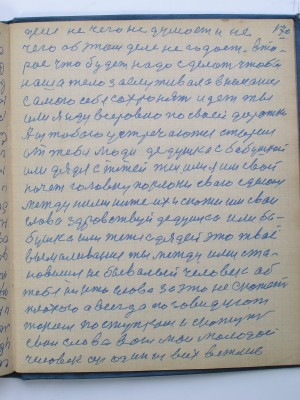 деля не чего не думост и не
чего об этом деле не гадост. Вто-
рое что будет надо сделат чтобы
наша тело заслуживала внимания
самого себя сохронят идет ты
или я иду всеровно по своей дорожки
А и тобою устречаются старые
люди дедушка с бабушкой
или дядя с тётей ты им свой
почет головку поклони сваю
между ними и скожи им свои
слова здровствуй дедушка или ба-
бушка или тетя с дядей это твоё
ты между ими ста-
новишся не бывалый человек об
тебя ни кто слова за это не скожет
плохого а всегда позовидуют
токим поступкам и скожут
свои слова вот мои молодой
человек он один из всех вежлив